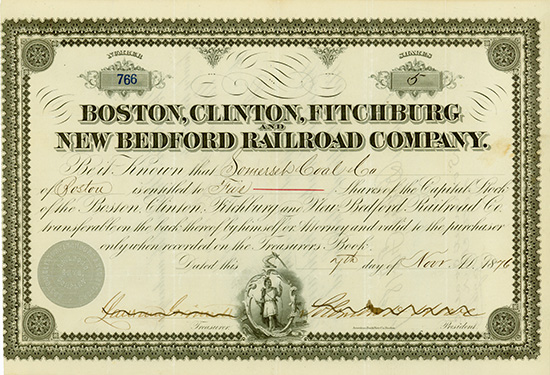 NUMBER SHARES
766 5
BOSTON, CLINTON, FITCHBURG
AND
NEW BEDFORD RAILROAD COMPANY.
Be it Known that Somerset Coal & Co
of Boston is entitled to Five Shares of the Capital Stock
of the Boston, Clinton, Fitchburg and New Bedford Railroad Co.
transferable on the back thereof by himself or Attorney and valid to the purchaser
only when recorded on the Treasurers Book.
Dated this 7th day of Nov. A.D. 1876
Treasurer President